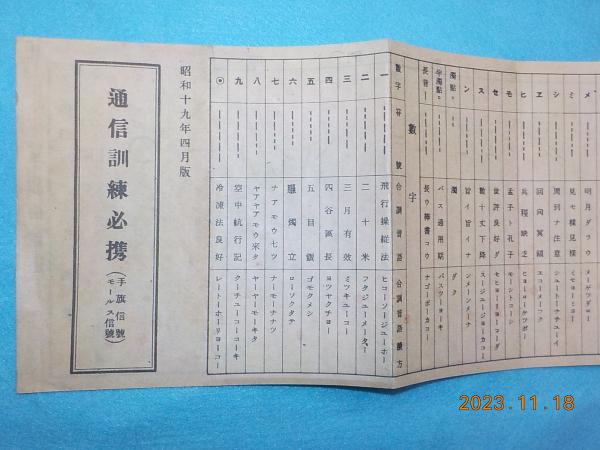 メ 明月ダラウ メーゲツダロー
ミ 見セ様見様
シ 周到ナ注意 シュートーナチューイ
ヱ 回向冥福 エコーメーフク
ヒ 兵糧欠乏 ヒョーローケツボー
モ 孟子ト孔子 モーシトコーシ
セ 世評良好ダ セヒョーリョーコーダ
ス 数十丈下降 スージュージョーカコー
ン 旨イ旨イナ ンメーンメーナ
濁點 濁 ダク
半濁點 パス通用期 パスツーヨーキ
長音ー 長ウ棒書コウ ナゴーボーカコー
數字
數字 符號 合調音語 合調音語讀方
一 飛行操縦法 ヒコーソージューホー
二 二十米 フタジューメーター
三 三月有效 ミツキユーコー
四 四谷區長 ヨツヤクチョー
五 五目飯 ゴモクメシ
六 蠟燭立 ローソクタテ
七 ナアモウ七ツ ナーモーナナツ
八 ヤアヤアモウ來タ ヤーヤーモーキタ
九 空中航行記 クーチューコーコーキ
◎ 冷凍法良好 レートーホーリョーコー
昭和十九年四月版
通信訓練必携(手旗信號 モールス信號)
2023.11.18